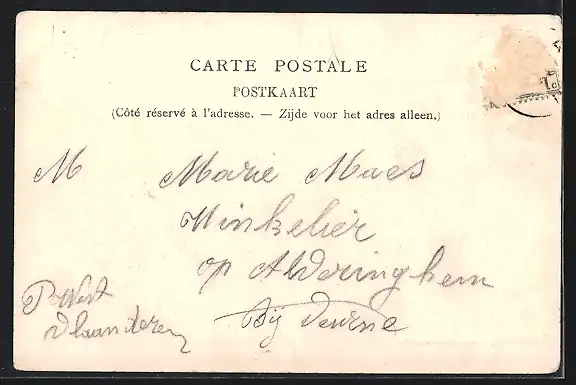 CARTE POSTALE
POSTKAART
(Côté réservé à l'adresse. — Zijde voor het adres alleen.)
M Marie Maes
Winkelier
op
Bij Deurne
West
Vlaanderen